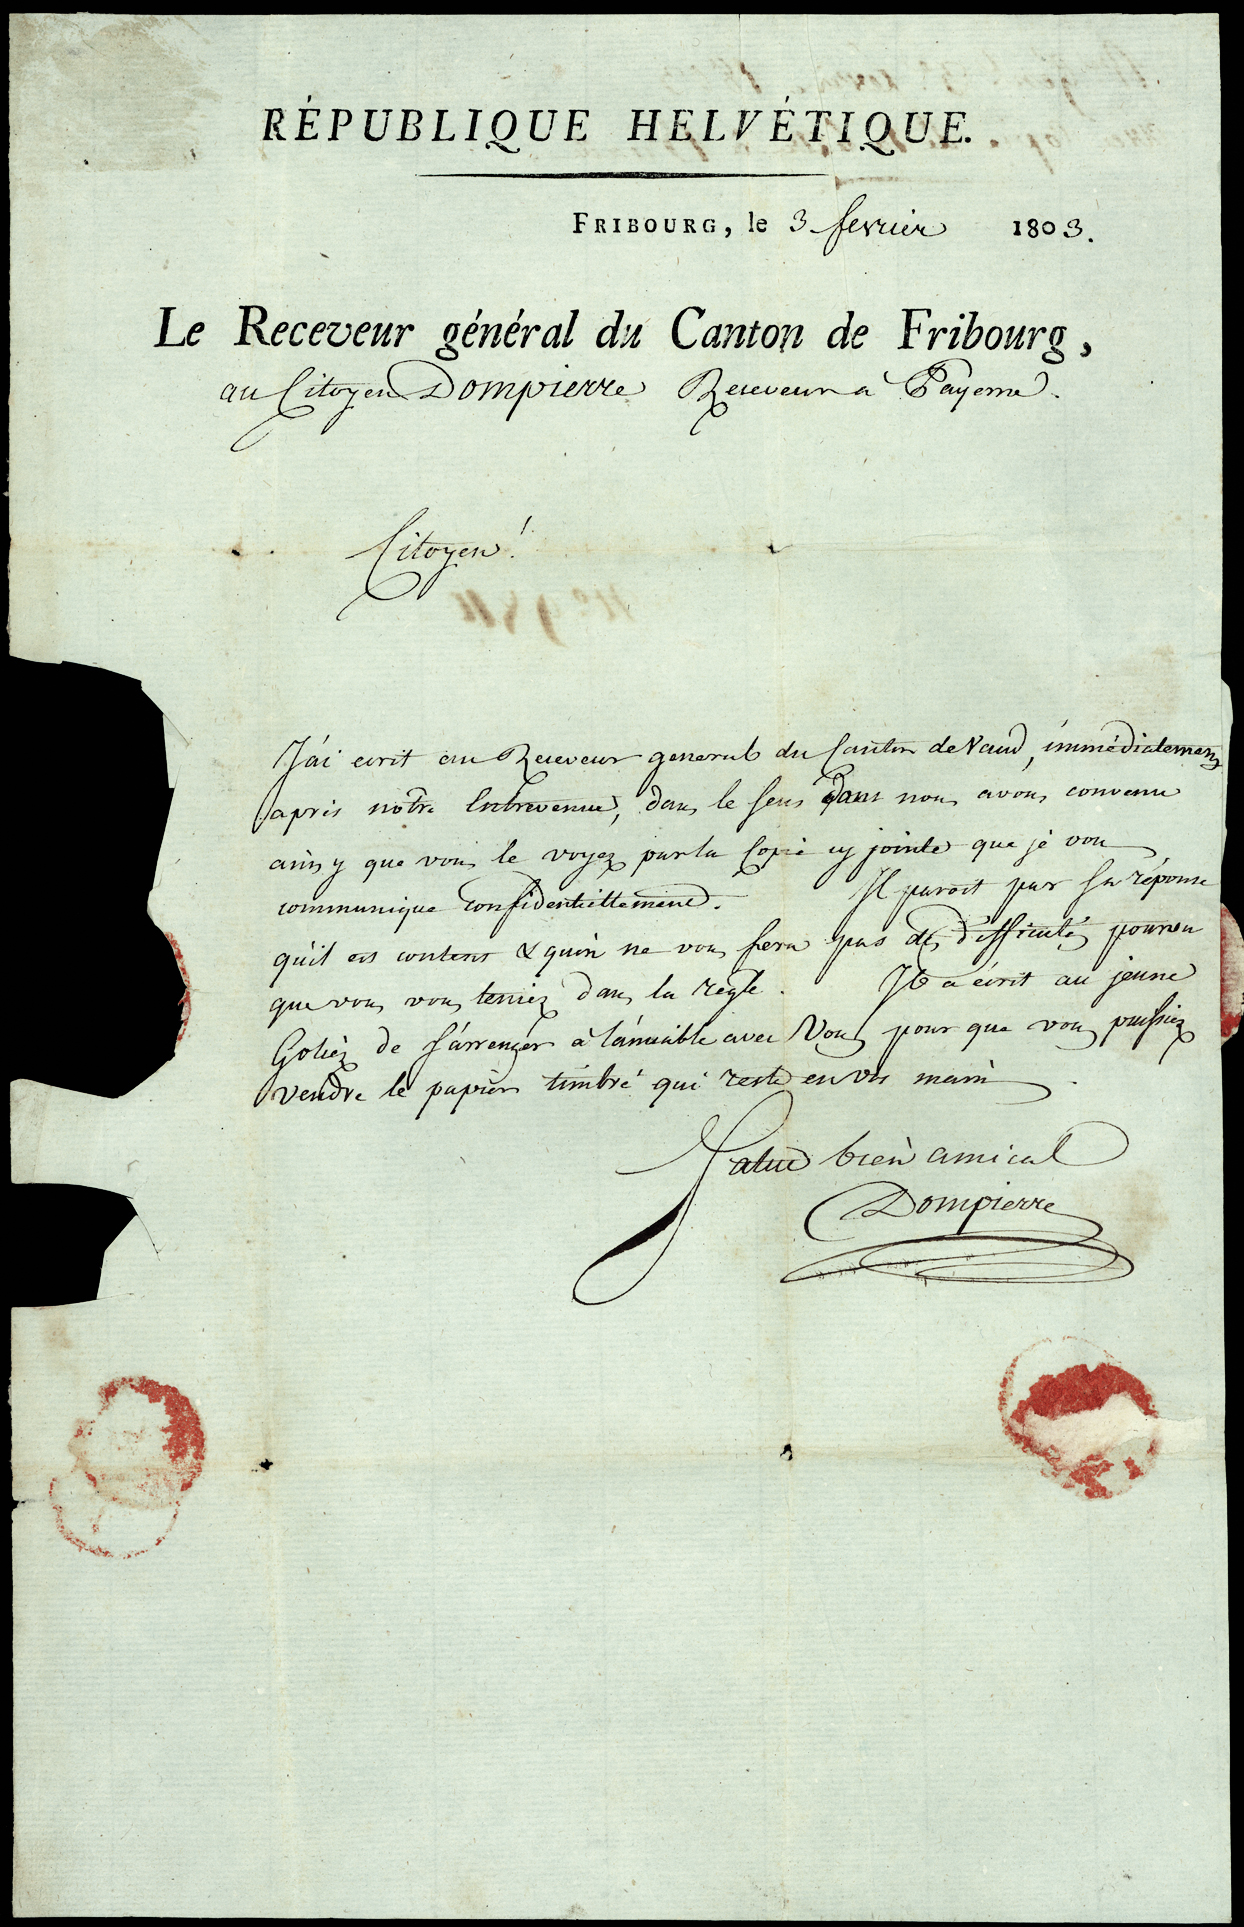 RÉPUBLIQUE HELVÉTIQUE.
FRIBOURG, le 3 fevrier 1803.
Le Receveur général du Canton de Fribourg,
au Citoyen Dompierre Receveur a Payerne.
Citoyen!
J'ai ecrit au Receveur general du Canton de Vaud, immédiatement
après notre Entrevenue, dans le sens dont nous avons convenu
ainsy que vous le voyez par la Copie cy jointe que je vous
communique confidentiellement. Il paroit par sa réponse
qu'il est content & qu'on ne vous fera pas des difficultés pourvu
que vous vous teniez dans la regle. Il a écrit au jeune
Goliéz de s'arrenger à l'amiable avec Vous pour que vous puissiez
vendre le papier timbré qui reste en vos mains.
Salut bien amical
Dompierre